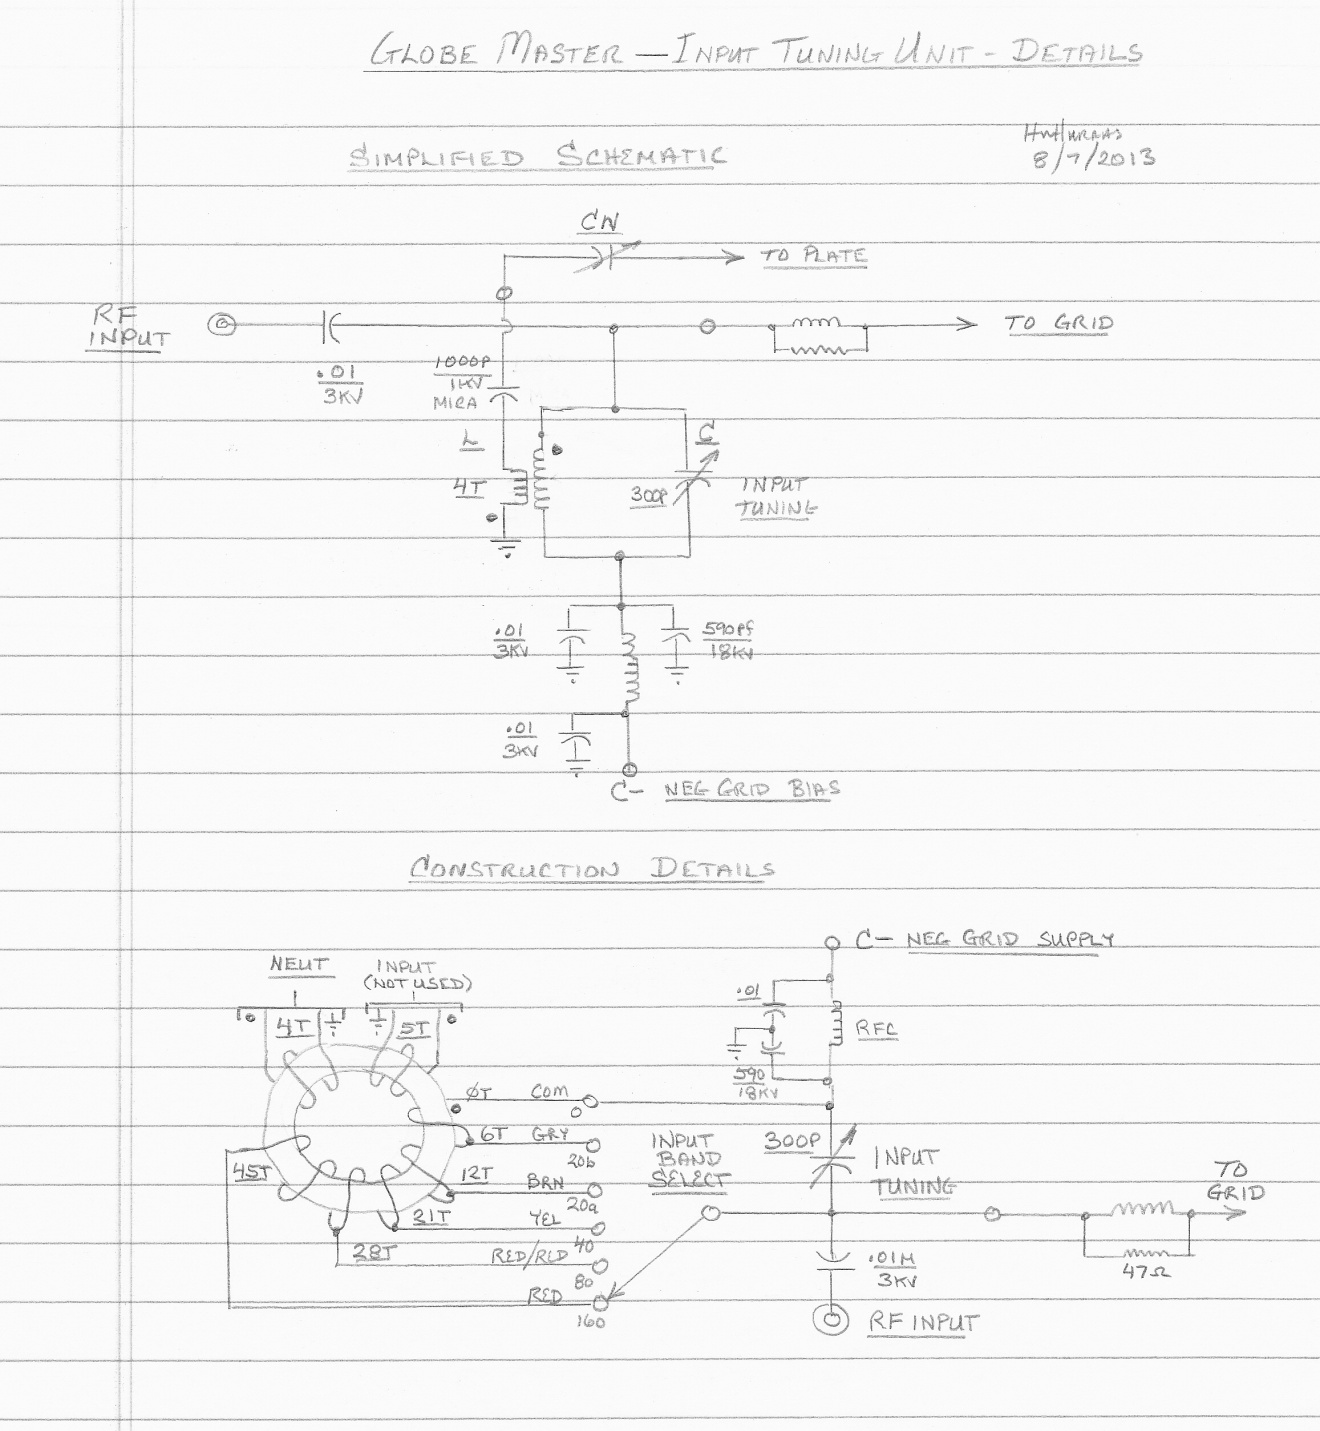 GLOBE MASTER — INPUT TUNING UNIT - DETAILS
8/7/2013
SIMPLIFIED SCHEMATIC
CN
TO PLATE
RF
INPUT
TO GRID
.01
3KV
1000P
1KV
MIRA
L
4T
C
300P
INPUT
TUNING
.01
3KV
590Pf
18KV
.01
3KV
C- NEG GRID BIAS
CONSTRUCTION DETAILS
C- NEG GRID SUPPLY
NEUT
INPUT
(NOT USED)
4T
5T
.01
RFC
590
18KV
0T COM
0
6T GRY
20b
12T BRN
20a
YEL
40
28T
80
RED
160
45T
INPUT
BAND
SELECT
300P
INPUT
TUNING
TO
GRID
47Ω
.01M
3KV
RF INPUT